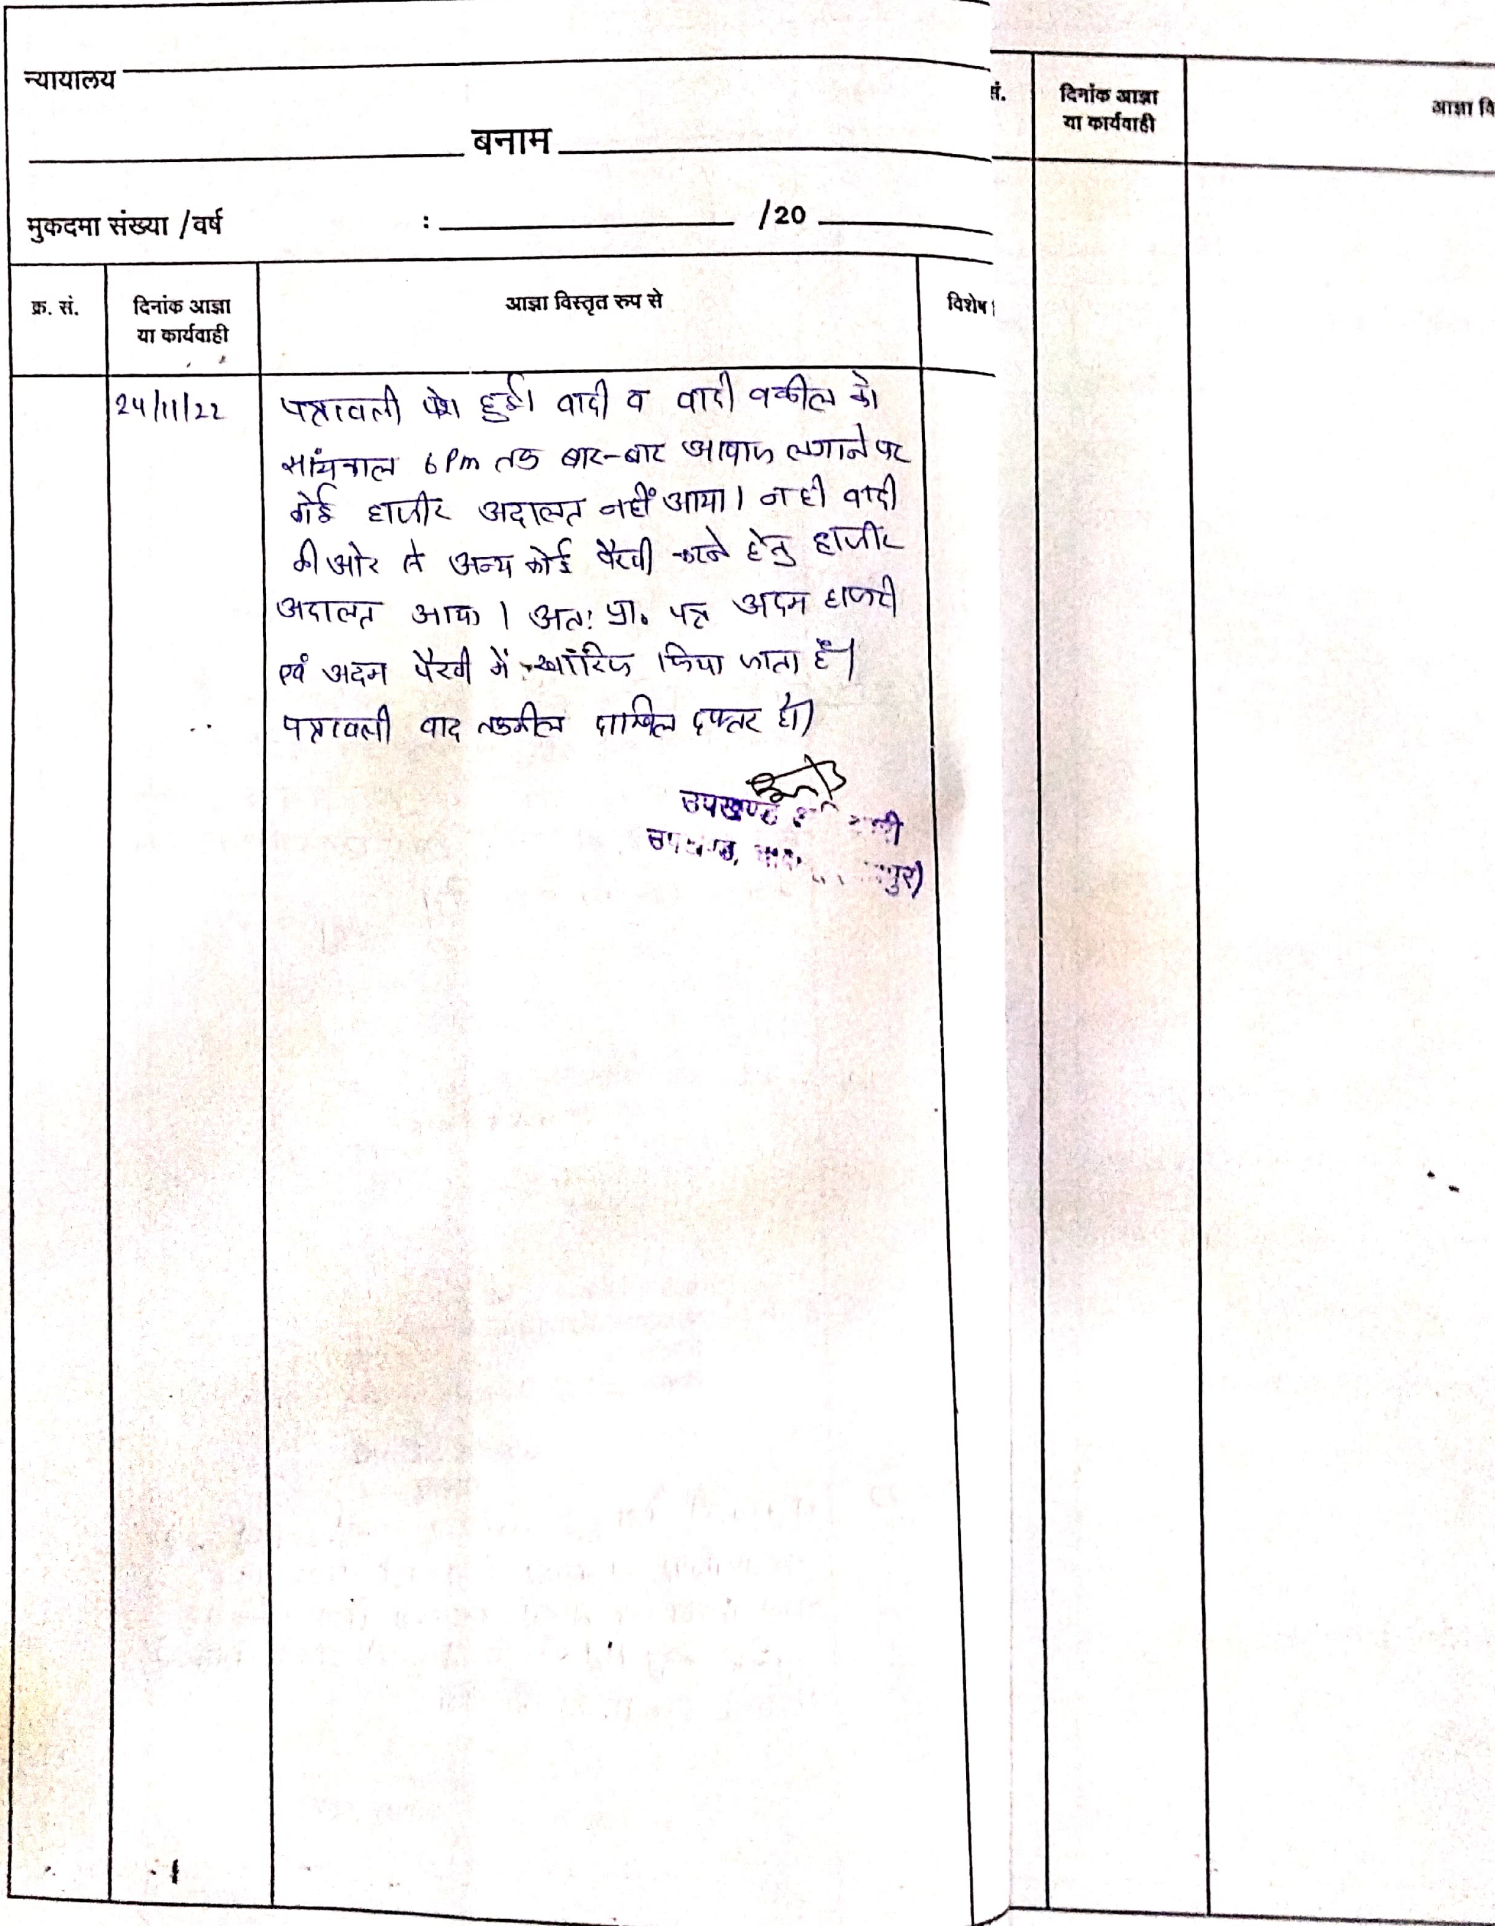 न्यायालय
बनाम
मुकदमा संख्या /वर्ष : /20
क्र. सं. दिनांक आज्ञा आज्ञा विस्तृत रुप से विशेष
या कार्यवाही
24/11/22 पत्रावली पेश हुई। वादी व वादी वकील को
सांयकाल 6 Pm तक बार-बार आवाज लगाने पर
कोई हाजीर अदालत नहीं आया। न ही वादी
की ओर से अन्य कोई पैरवी करने हेतु हाजीर
अदालत आया। अतः प्रा. पत्र अदम हाजरी
एवं अदम पैरवी में खारिज किया जाता है।
पत्रावली बाद तकमील दाखिल दफ्तर हो।
उपखण्ड
सं. दिनांक आज्ञा आज्ञा वि
या कार्यवाही